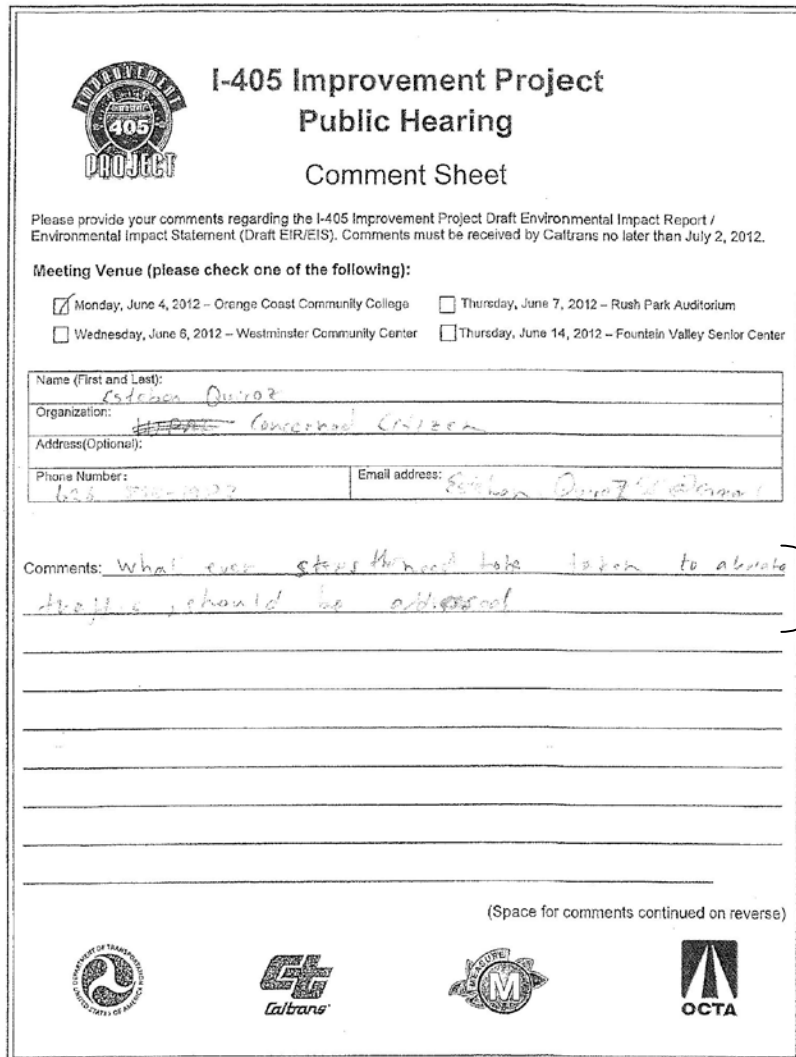 IMPROVEMENT
405
PROJECT
I-405 Improvement Project
Public Hearing
Comment Sheet
Please provide your comments regarding the I-405 Improvement Project Draft Environmental Impact Report /
Environmental Impact Statement (Draft EIR/EIS). Comments must be received by Caltrans no later than July 2, 2012.
Meeting Venue (please check one of the following):
Monday, June 4, 2012 – Orange Coast Community College
Thursday, June 7, 2012 – Rush Park Auditorium
Wednesday, June 6, 2012 – Westminster Community Center
Thursday, June 14, 2012 – Fountain Valley Senior Center
Name (First and Last):
Esteban Quiroz
Organization:
Concerned Citizen
Address(Optional):
Phone Number:
Email address:
Comments: What ever steps need taken to
traffic, should be
(Space for comments continued on reverse)
DEPARTMENT OF TRANSPORTATION
UNITED STATES OF AMERICA
Caltrans
MEASURE
M
OCTA